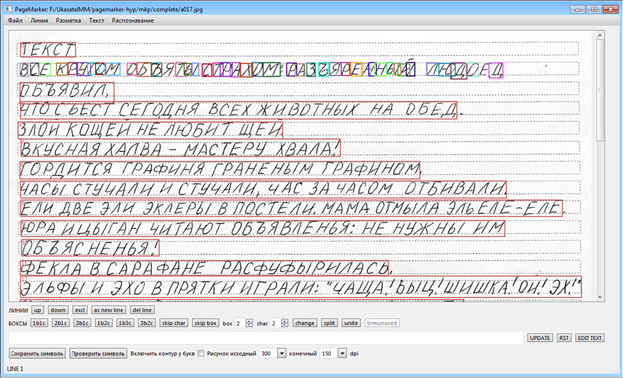 PageMarker - F:/UkasatelMM/pagemarker-hyp/mkp/complete/a017.jpg
Файл Линия Разметка Текст Распознавание
ТЕКСТ
ВСЕ КАЧКОМ ОБЪЯТЫ СТРАХИМ: РАЗЪЯРЕННЫЙ ЛЮДОЕД
ОБЪЯВИЛ,
ЧТО СЪЕСТ СЕГОДНЯ ВСЕХ ЖИВОТНЫХ НА ОБЕД.
ЗЛОЙ КОЩЕЙ НЕ ЛЮБИТ ЩЕЙ
ВКУСНАЯ ХАЛВА - МАСТЕРУ ХВАЛА!
ГОРДИТСЯ ГРАФИНЯ ГРАНЕНЫМ ГРАФИНОМ.
ЧАСЫ СТУЧАЛИ И СТУЧАЛИ, ЧАС ЗА ЧАСОМ ОТБИВАЛИ.
ЕЛИ ДВЕ ЭЛИ ЭКЛЕРЫ В ПОСТЕЛИ. МАМА ОТМЫЛА ЭЛЬ ЕЛЕ-ЕЛЕ.
ЮРА И ЦЫГАН ЧИТАЮТ ОБЪЯВЛЕНЬЯ: НЕ НУЖНЫ ИМ
ОБЪЯСНЕНЬЯ!
ФЕКЛА В САРАФАНЕ РАСФУФЫРИЛАСЬ.
ЭЛЬФЫ И ЭХО В ПРЯТКИ ИГРАЛИ: "ЧАЩА! ЫЫЦ! ШИШКА! ОЙ! ЭХ!"
ЛИНИИ up down excl as new line del line
БОКСЫ 1b1c 2b1c 3b1c 1b2c 1b3c 3b2c skip char skip box box 2 char 2 change split unite trimunused
UPDATE RST EDIT TEXT
Сохранить символы Проверить символы Включить контур у букв Рисунок исходный 300 конечный 150 dpi
LINE 1